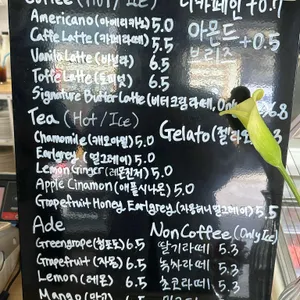 Coffee (Hot/Ice)
Americano (아메리카노) 5.0
Caffe Latte (카페라떼) 5.5
Vanilla Latte (바닐라) 6.5
Toffe Latte (토피넛) 6.5
Signature Butter Latte (버터크림라떼, Only 6.8
디카페인 +0.7
아몬드
브리즈 +0.5
Tea (Hot/Ice)
Chamomile (캐모마일) 5.0
Earlgrey (얼그레이) 5.0
Lemon Ginger (레몬진저) 5.0
Apple Cinamon (애플시나몬) 5.0
Grapefruit Honey Earlgrey (자몽허니얼그레이) 5.5
Gelato (젤라또) 3
Ade
Greengrope (청포도) 6.5
Grapefruit (자몽) 6.5
Lemon (레몬) 6.5
Mango (망고)
Non Coffee (Only Ice)
딸기라떼 5.3
녹차라떼 5.3
초코라떼 5.3